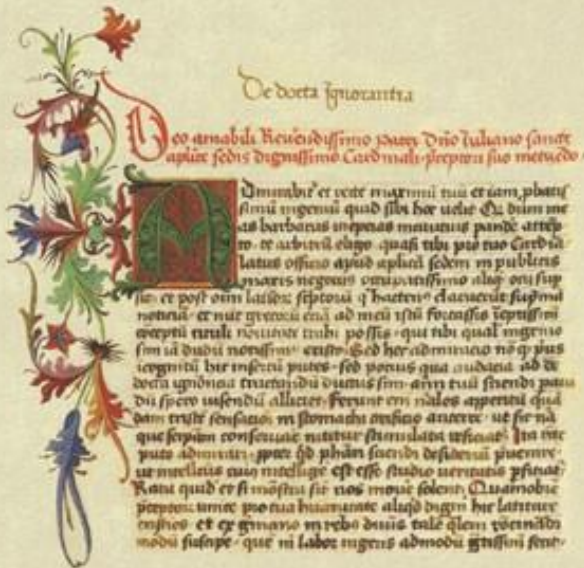 De docta Ignorantia
Deo amabili Reverendissimo patri Dno Iuliano sancte
aplice sedis dignissimo Cardinali preceptori suo metuēdo
Admirabit et recte maximū tuū et iam pbatis
simū ingeniū quid sibi hoc velit Qd dum me
as barbaras ineptias incautius pande attēp
to te arbitrū eligo quasi tibi pro tuo Cardīa
latus officio apud aplicā sedem in publicis
maxīs negocīs occupatissimo aliqd ocii sup
sit et post oīm latīoȝ scptorū q hacten claruerūt supma
noticia et nūc grecorū eciā ad meū istū fortassis īeptissimū
cōceptū tituli novitate trahi possis qui tibi quali ingenio
sim iā dudū notissim existo Sed hec admiracio nō q pus
icognitū hic insertū putes sed pocius qua audacia ad de
docta ignorācia tractandū ductus sim aīm tuū sciendi pā
dū spero visendū alliciet Ferunt em nāles appetitū quā
dam triste sensacioē in stomachi orificio anteire ut sic nā
que seipām conservare nititur stimulata reficiat Ita recte
puto admirari ppter qd phāri sciendi desideriū pvenire
ut intellcus cuiȝ intellige est esse studio veritatis pficiat
Rara quidē et si mōstra sint nos movē solent Quamobrē
pceptoȝ unice pro tua humanitate aliqd digni hic latitare
existīes et ex gmano in rebȝ divīs talē qlem rōcinādi
modū suscipe quē m labor ingens admodū gtissimū fecit